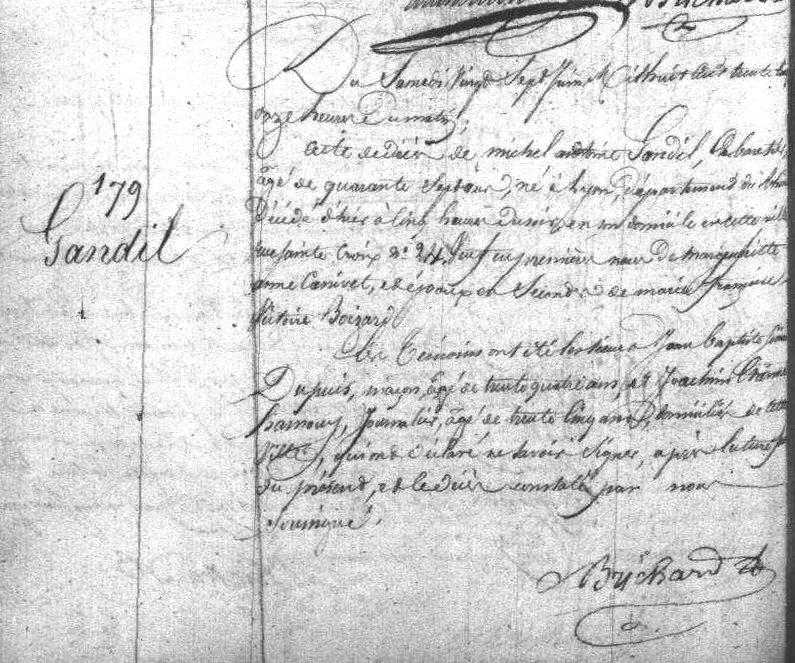 Brichard
Du Samedi Vingt Sept Juin Mil huit cent trente
onze heures du matin,
179
Gandil
acte de décès de michel antoine Gandil,
âgé de quarante Sept ans, né à Lyon, département du Rhône
Décédé d'hier à cinq heures du soir, en son domicile en cette ville
rue Sainte Croix n° 24, Veuf en premières noces De marguerite
anne Canivet, et époux en Secondes de marie françoise
Victoire Boizard
Les Témoins ont été les sieurs Jean Baptiste
Dupuis, maçon, âgé de trente quatre ans, et Joachim
hamouy, Journalier, âgé de trente cinq ans, domiciliés de cette
Ville, qui ont déclaré ne Savoir Signer, après lecture
du présent, et le décès constaté par nous
Soussigné.
Brichard